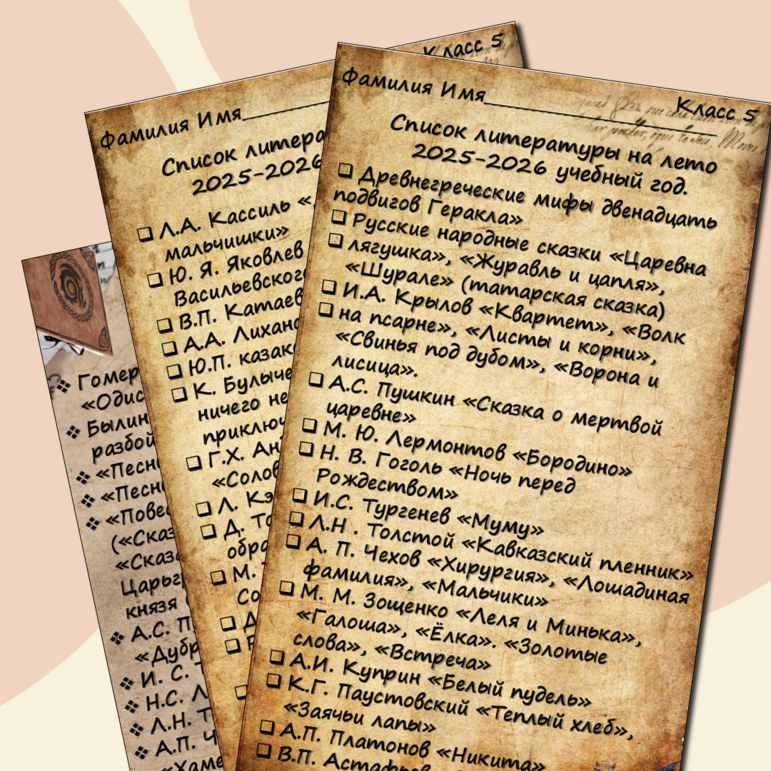 Класс 5
Фамилия Имя
Список литературы на лето
2025-2026 учебный год.
❑ Древнегреческие мифы двенадцать
подвигов Геракла»
❑ Русские народные сказки «Царевна
❑ лягушка», «Журавль и цапля»,
«Шурале» (татарская сказка)
❑ И.А. Крылов «Квартет», «Волк
❑ на псарне», «Листы и корни»,
«Свинья под дубом», «Ворона и
лисица».
❑ А.С. Пушкин «Сказка о мертвой
царевне»
❑ М. Ю. Лермонтов «Бородино»
❑ Н. В. Гоголь «Ночь перед
Рождеством»
❑ И.С. Тургенев «Муму»
❑ Л.Н . Толстой «Кавказский пленник»
❑ А. П. Чехов «Хирургия», «Лошадиная
фамилия», «Мальчики»
❑ М. М. Зощенко «Леля и Минька»,
«Галоша», «Ёлка». «Золотые
слова», «Встреча»
❑ А.И. Куприн «Белый пудель»
❑ К.Г. Паустовский «Теплый хлеб»,
«Заячьи лапы»
❑ А.П. Платонов «Никита»
❑ В.П.
Класс 5
Фамилия Имя
Список
2025-2026
❑ Л.А. Кассиль «
мальчишки»
❑ Ю. Я. Яковлев
❑ В.П. Катаев
❑ А.А.
❑ Ю.П. казак
❑ К.
ничего не
❑ Г.Х.
❑ Л.
❑ Д.
❑ М.
❖ Гомер
❖
❖
❖
❖
князя
❖ А.С.
❖ И. С.
❖ Н.С.
❖ Л.Н.
❖ А.П.